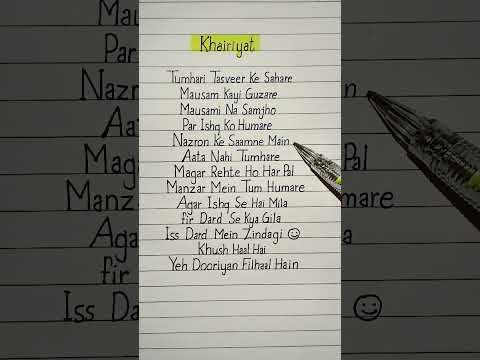 Khairiyat
Tumhari Tasveer Ke Sahare
Mausam Kayi Guzare
Mausami Na Samjho
Par Ishq Ko Humare
Nazron Ke Saamne Main
Aata Nahi Tumhare
Magar Rehte Ho Har Pal
Manzar Mein Tum Humare
Agar Ishq Se Hai Mila
fir Dard Se Kya Gila
Iss Dard Mein Zindagi ☺
Khush Haal Hai
Yeh Dooriyan Filhaal Hain